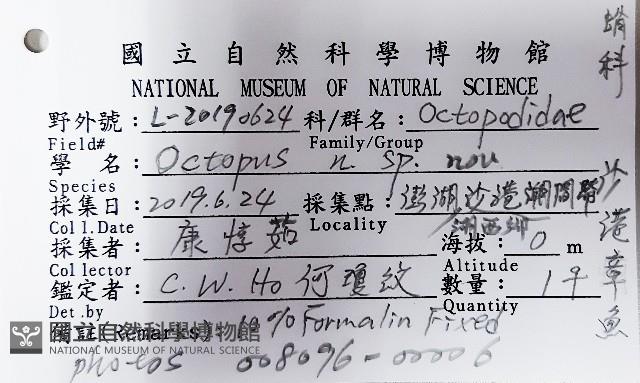 國立自然科學博物館
NATIONAL MUSEUM OF NATURAL SCIENCE
野外號：L-20190624 科/群名：Octopodidae
Field# Family/Group
學名：Octopus n. sp. nov
Species
採集日：2019.6.24 採集點：澎湖沙港潮間帶
湖西鄉
Coll.Date Locality
採集者：康惇茹 海拔：0 m
Collector Altitude
鑑定者：C.W.Ho 何瓊紋 數量：1♀
Det.by Quantity
備註(Remarks) 10% Formalin Fixed
photos 008096-00006
蛸科
沙港章魚
國立自然科學博物館
NATIONAL MUSEUM OF NATURAL SCIENCE